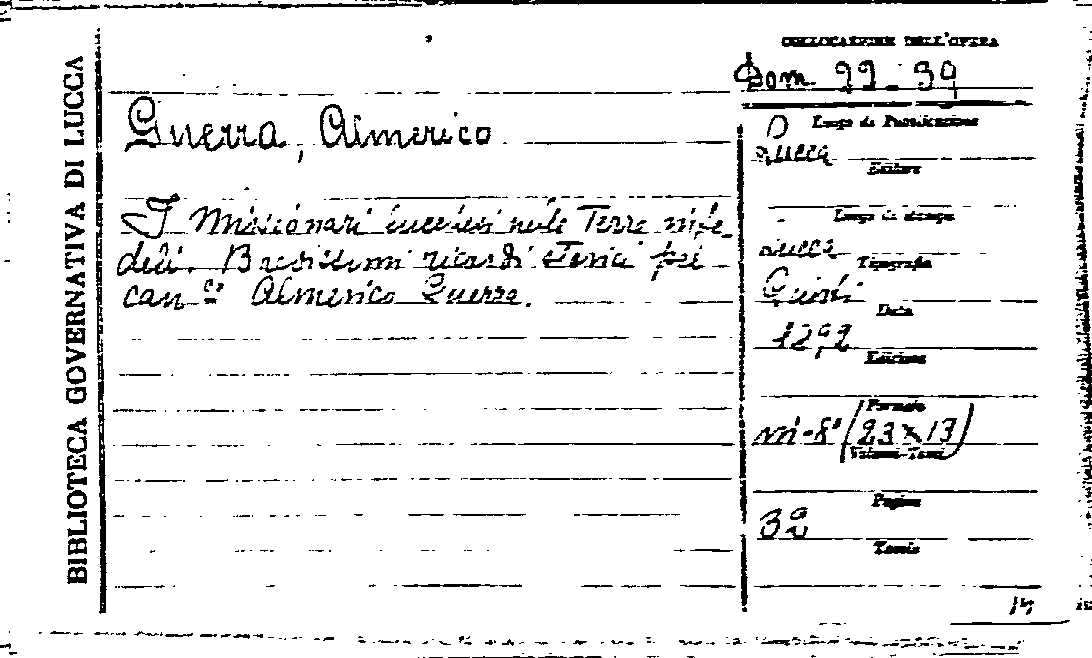 BIBLIOTECA GOVERNATIVA DI LUCCA
COLLOCAZIONE DELL'OPERA
Dom. 99-39
Guerra, Almerico
I Missionari lucchesi nelle Terre infe-
deli. Brevissimi ricordi storici pel
can.co Almerico Guerra.
Luogo di Pubblicazione
Lucca
Editore
Luogo di stampa
Lucca
Tipografia
Giusti
Data
Edizione
Formato
in-8° (23x13)
Volumi-Tomi
Pagine
Tavole